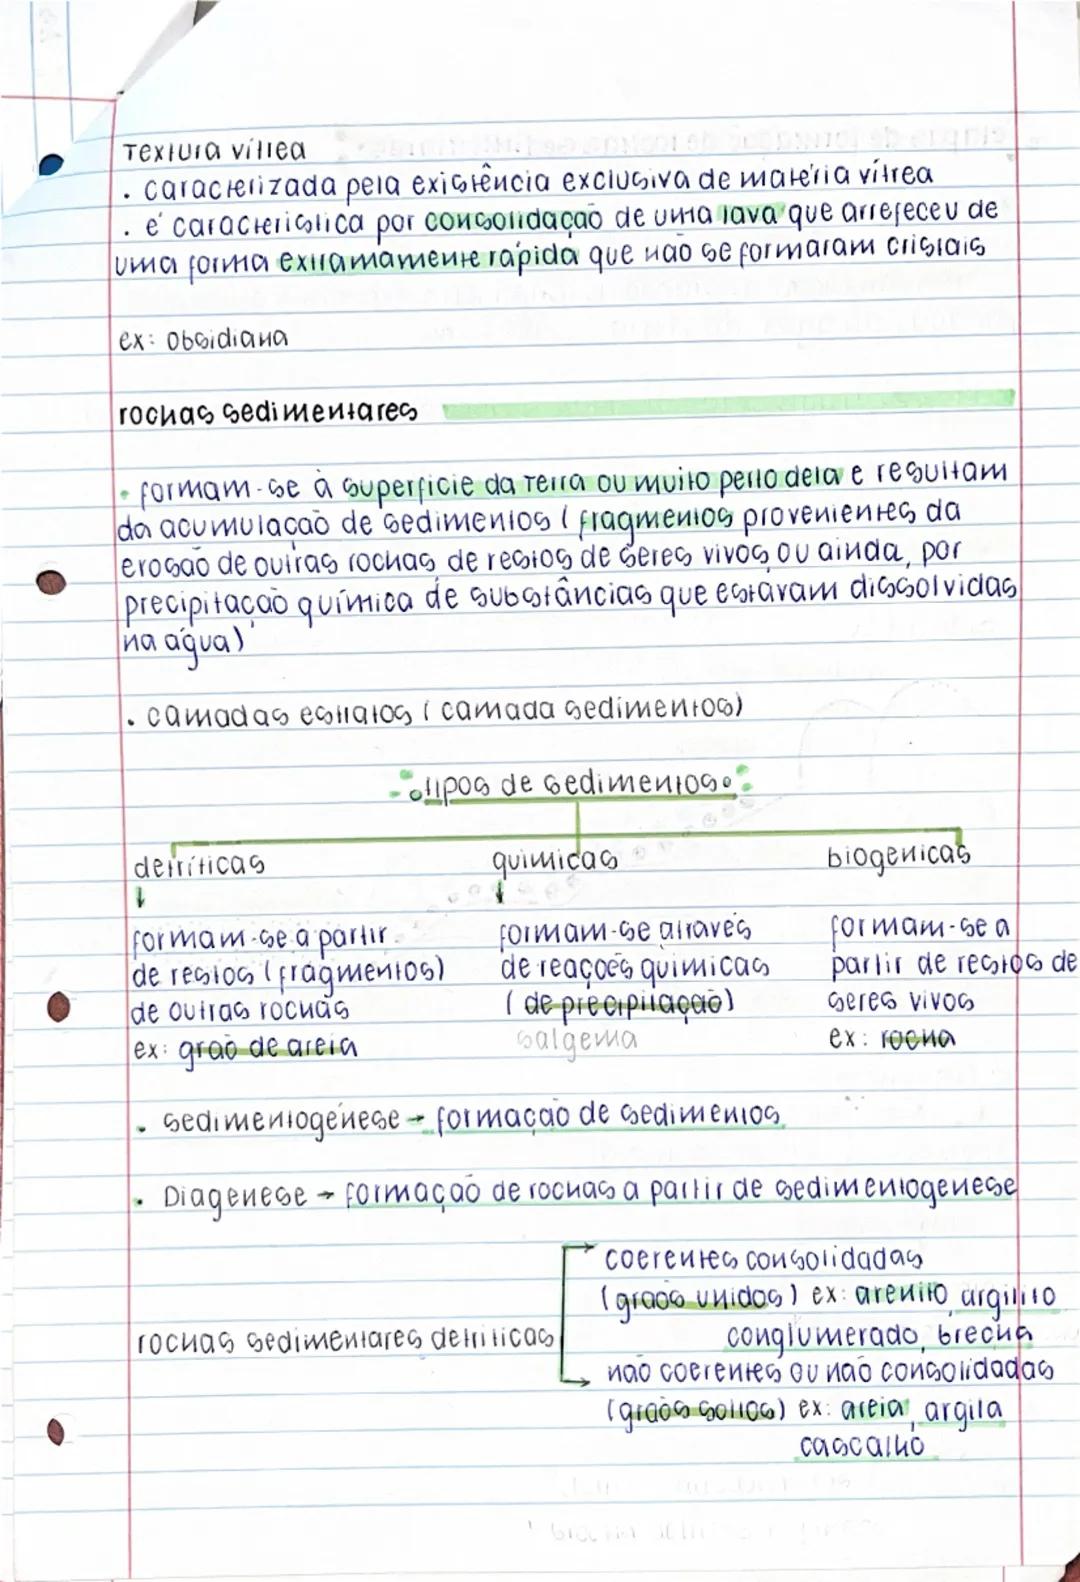 Textura vítrea
. caracterizada pela existência exclusiva de matéria vítrea
. é caracteristica por consolidação de uma lava que arrefeceu de
uma forma extramamente rápida que não se formaram cristais
ex: obsidiana
rochas sedimentares
• formam-se à superfície da Terra ou muito perto dela e resultam
da acumulação de sedimentos (fragmentos provenientes da
erosão de outras rochas de restos de seres vivos ou ainda, por
precipitação química de substâncias que estavam dissolvidas
na água)
. camadas estratos (camada sedimentos)
tipos de sedimentos
detríticas químicas biogenicas
formam-se a partir formam-se através formam-se a
de restos (fragmentos) de reações químicas partir de restos de
de outras rochas (de precipitação) seres vivos
ex: grão de areia salgema ex: rocha
. sedimentogénese → formação de sedimentos
. Diagenese → formação de rochas a partir de sedimentogenese
coerentes consolidadas
(grãos unidos) ex: arenito, argilito
rochas sedimentares detriticas conglumerado, brecha
não coerentes ou não consolidadas
(grãos soltos) ex: areia, argila
cascalho